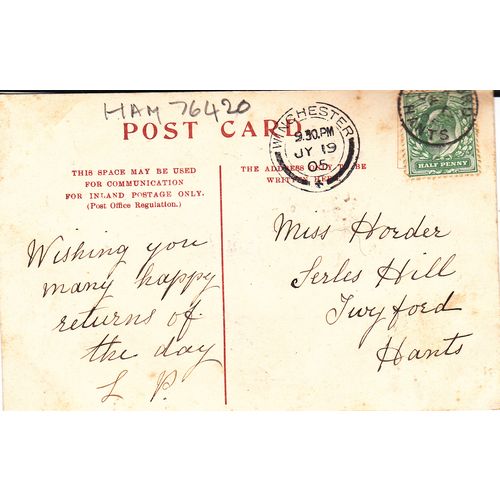 HAM 76420
POST CARD
THIS SPACE MAY BE USED
FOR COMMUNICATION
FOR INLAND POSTAGE ONLY.
(Post Office Regulation.)
THE ADDRESS ONLY TO BE
WRITTEN HERE
WINCHESTER
9.30.PM
JY 19
05
HANTS
HALF PENNY
Wishing you
many happy
returns of
the day
L P.
Miss Horder
Serles Hill
Twyford
Hants